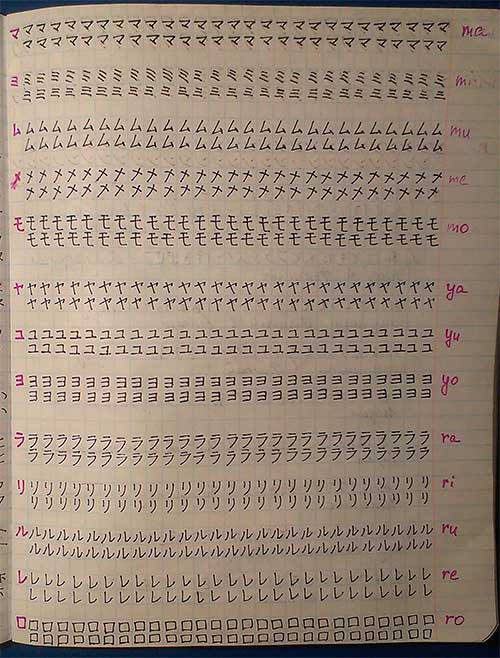 マ ママママママママママママママママママママママママママママママ ma
ママママママママママママママママママママママママママママママ
ミ ミミミミミミミミミミミミミミミミミミミミミミミミミミ mi
ミミミミミミミミミミミミミミミミミミミミミミミミミミ
ム ムムムムムムムムムムムムムムムムムムムムムムムムムムム mu
ムムムムムムムムムムムムムムムムムムムムムムムムムムム
メ メメメメメメメメメメメメメメメメメメメメメメメメメメメメ me
メメメメメメメメメメメメメメメメメメメメメメメメメメメメ
モ モモモモモモモモモモモモモモモモモモモモモモモモモ mo
モモモモモモモモモモモモモモモモモモモモモモモモモ
ヤ ヤヤヤヤヤヤヤヤヤヤヤヤヤヤヤヤヤヤヤヤヤヤヤヤヤヤヤ ya
ヤヤヤヤヤヤヤヤヤヤヤヤヤヤヤヤヤヤヤヤヤヤヤヤヤヤヤ
ユ ユユユユユユユユユユユユユユユユユユユユユユユユユユユ yu
ユユユユユユユユユユユユユユユユユユユユユユユユユユユ
ヨ ヨヨヨヨヨヨヨヨヨヨヨヨヨヨヨヨヨヨヨヨヨヨヨヨヨヨヨヨ yo
ヨヨヨヨヨヨヨヨヨヨヨヨヨヨヨヨヨヨヨヨヨヨヨヨヨヨヨヨ
ラ ララララララララララララララララララララララララララララ ra
ララララララララララララララララララララララララララララ
リ リリリリリリリリリリリリリリリリリリリリリリリリリリリリ ri
リリリリリリリリリリリリリリリリリリリリリリリリリリリリ
ル ルルルルルルルルルルルルルルルルルルルルルルルルルルルル ru
ルルルルルルルルルルルルルルルルルルルルルルルルルルルル
レ レレレレレレレレレレレレレレレレレレレレレレレレレレレ re
レレレレレレレレレレレレレレレレレレレレレレレレレレレ
ロ ロロロロロロロロロロロロロロロロロロロロロロロロロロ ro
ロロロロロロロロロロロロロロロロロロロロロロロロロロ